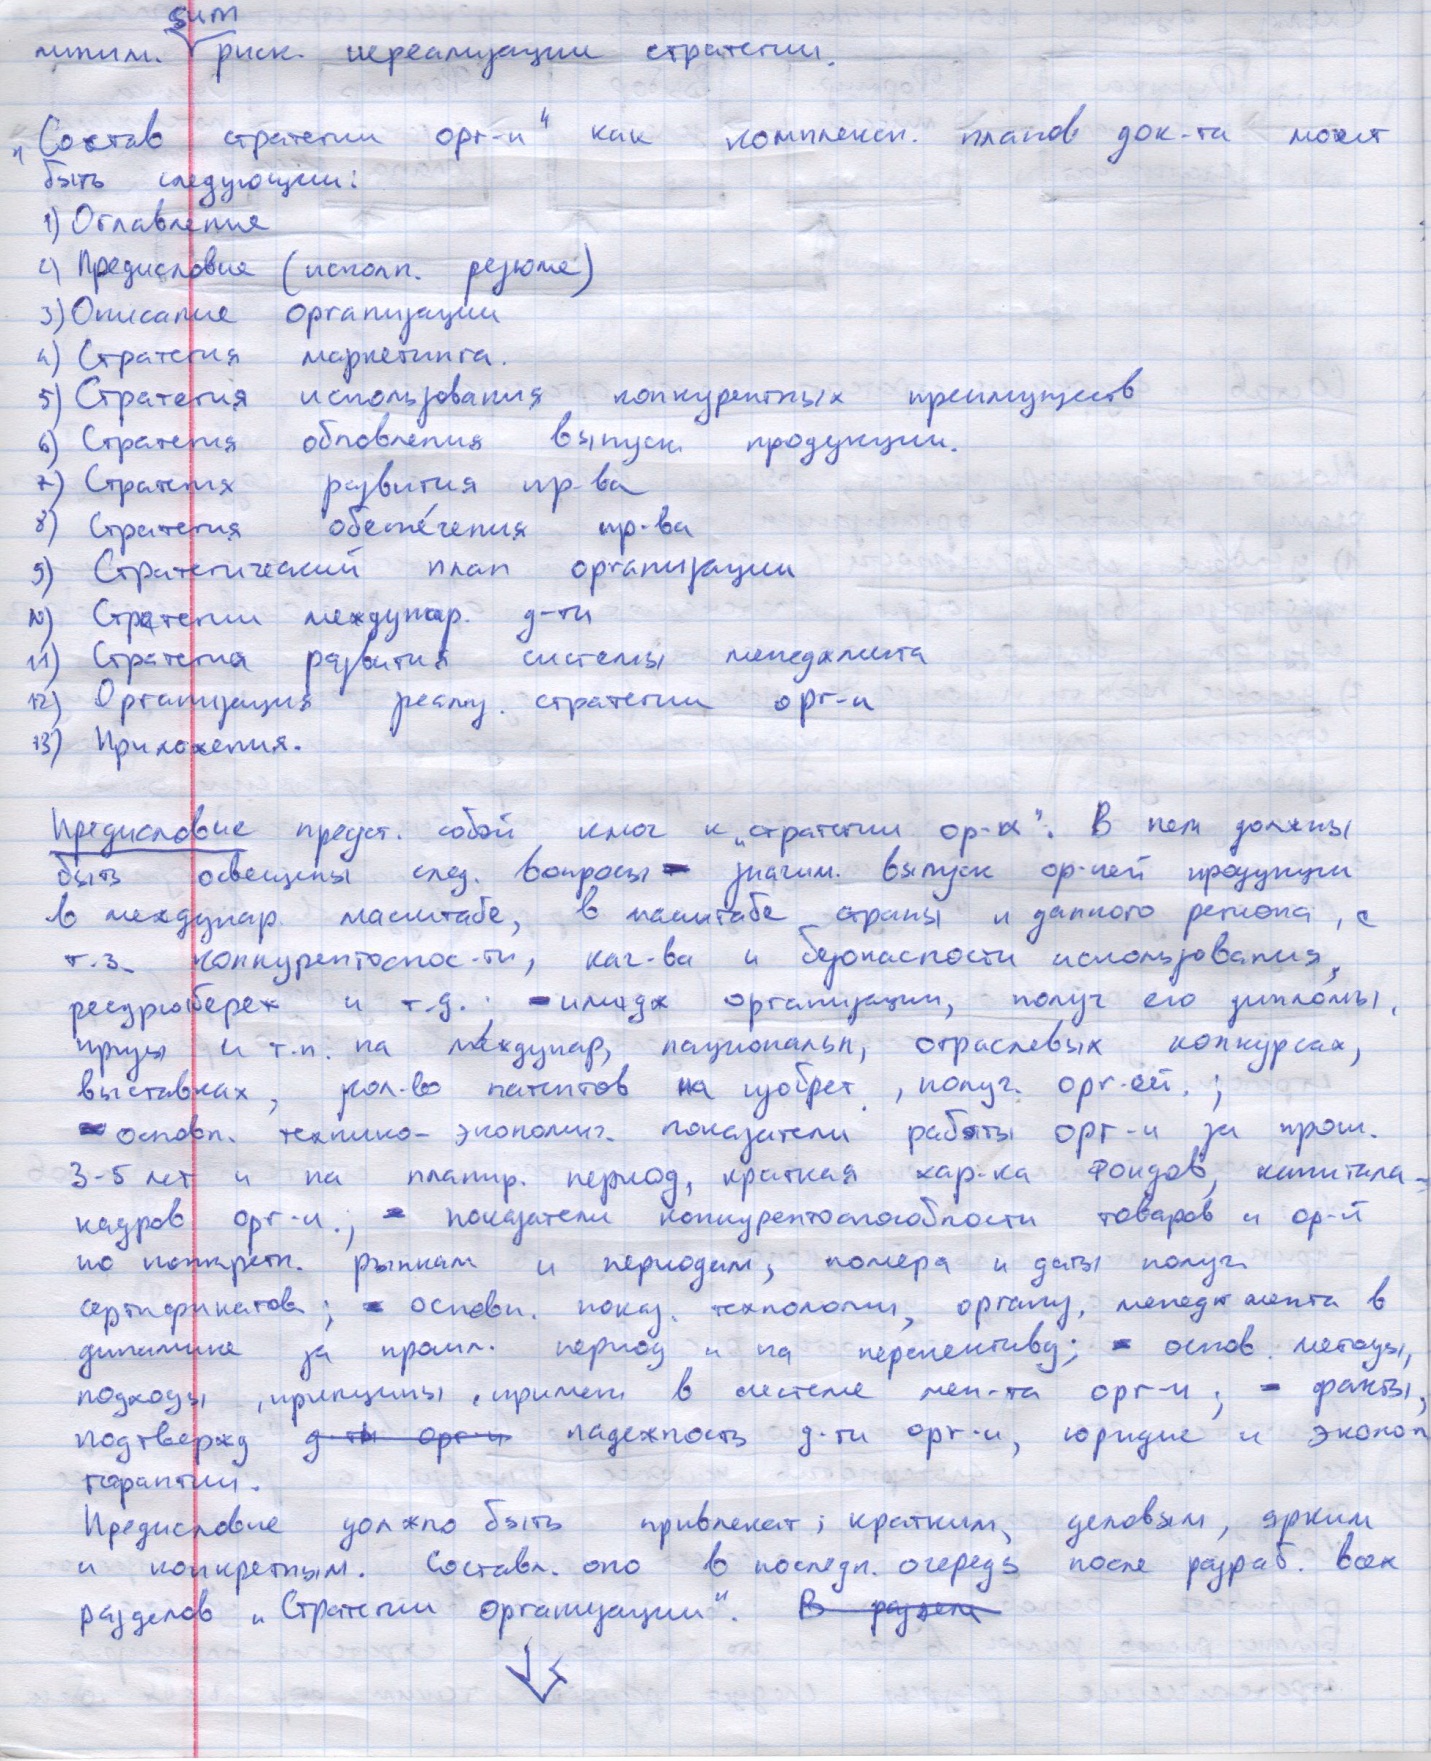 sum
миним. риск. нереализации стратегии.
„Состав стратегии орг-и“ как комплексн. планов док-та может
быть следующим:
1) Оглавления
2) Предисловие (исполн. резюме)
3) Описание организации
4) Стратегия маркетинга.
5) Стратегия использования конкурентных преимуществ
6) Стратегия обновления выпуск. продукции.
7) Стратегия развития пр-ва
8) Стратегия обеспечения пр-ва
9) Стратегический план организации
10) Стратегии междунар. д-ти
11) Стратегия развития системы менеджмента
12) Организация реализ. стратегии орг-и
13) Приложения.
Предисловие предст. собой ключ к „стратегии ор-и“. В нем должны
быть освещены след. вопросы - значим. выпуск ор-цией продукции
в междунар. масштабе, в масштабе страны и данного региона, с
т.з. конкурентоспос-ти, кач-ва и безопасности использования,
ресурсосбереж и т.д.; - имидж организации, получ его дипломы,
призы и т.п. на междунар, национальн, отраслевых конкурсах,
выставках, кол-во патентов на изобрет., получ. орг-ей.;
- основн. технико-экономич. показатели работы орг-и за прош.
3-5 лет и на планир. период, краткая хар-ка фондов, капитала
кадров орг-и.; - показатели конкурентоспособности товаров и ор-й
по конкретн. рынкам и периодам, номера и даты получ.
сертификатов; - основн. показ. технологии, организ, менеджмента в
динамике за прошл. период и на перспективу; - основ. методы,
подходы, принципы, примен в системе мен-та орг-и; - факты,
подтвержд д-ти орг-и надежность д-ти орг-и, юридие и эконом
гарантии.
Предисловие должно быть привлекат; кратким, деловым, ярким
и конкретным. Составл. оно в последн. очередь после разраб. всех
разделов „Стратегии организации“. В раздела